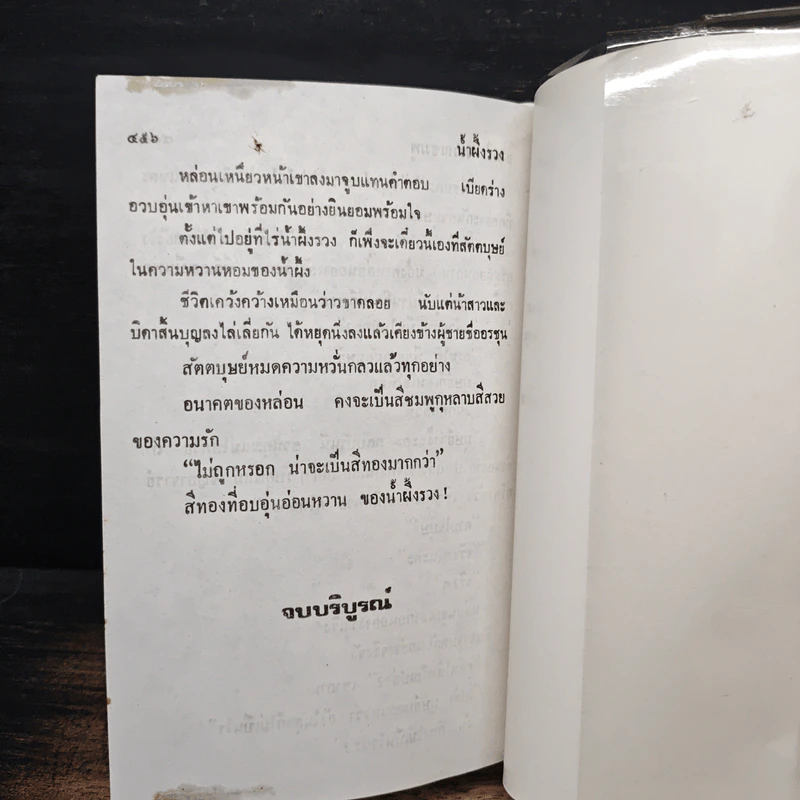 ๔๕๖
น้ำผึ้งรวง
หล่อนเหนี่ยวหน้าเขาลงมาจูบแทนคำตอบ เบียดร่าง
อวบอุ่นเข้าหาเขาพร้อมกันอย่างยินยอมพร้อมใจ
ตั้งแต่ไปอยู่ที่ไร่น้ำผึ้งรวง ก็เพิ่งจะเดี๋ยวนี้เองที่สัตตบุษย์
ในความหวานหอมของน้ำผึ้ง
ชีวิตเคว้งคว้างเหมือนว่าวขาดลอย นับแต่น้าสาวและ
บิดาสิ้นบุญลงไล่เลี่ยกัน ได้หยุดนิ่งลงแล้วเคียงข้างผู้ชายชื่ออรชุน
สัตตบุษย์หมดความหวั่นกลวแล้วทุกอย่าง
อนาคตของหล่อน คงจะเป็นสีชมพูกุหลาบสีสวย
ของความรัก
“ไม่ถูกหรอก น่าจะเป็นสีทองมากกว่า”
สีทองที่อบอุ่นอ่อนหวาน ของน้ำผึ้งรวง!
จบบริบูรณ์